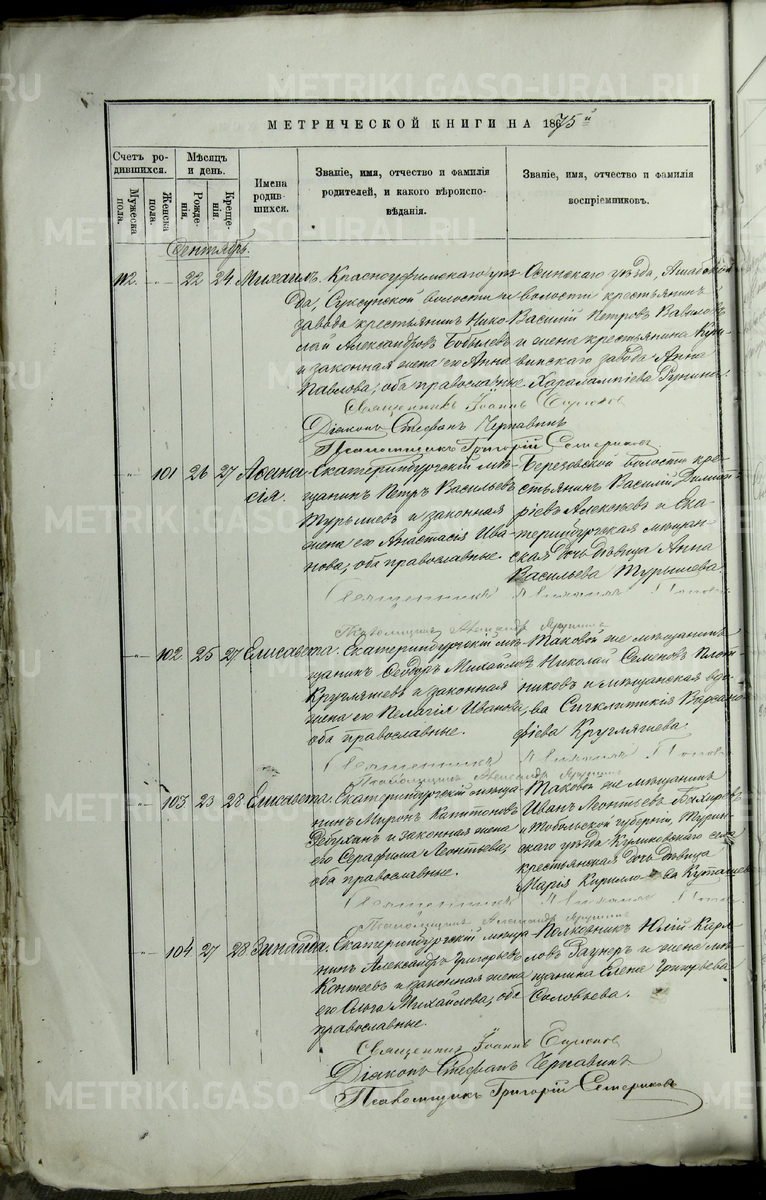 METRIKI.GASO-URAL.RU
МЕТРИЧЕСКОЙ КНИГИ НА 1875й
Счетъ ро-
дившихся.
Мужеска
пола.
Женска
пола.
Мѣсяцъ
и день.
Рожде-
нія.
Креще-
нія.
Имена
родив-
шихся.
Званіе, имя, отчество и фамилія
родителей, и какого вѣроиспо-
вѣданія.
Званіе, имя, отчество и фамилія
воспріемниковъ.
Сентябрь.
112. 22 24 Михаилъ.
Красноуфимскаго уѣз-
да, Суксунской волости и
завода крестьянинъ Нико-
лай Александровъ Бобылевъ
и законная жена его Анна
Павлова; оба православные
Осинскаго уѣзда,
волости крестьянинъ
Василій Петровъ Вавиловъ
и жена крестьянина
завода Анна
Харалампіева
Священникъ Іоаннъ
Діаконъ Стефанъ Чернавинъ
Псаломщикъ Григорій Семериковъ
101 26 27 Анаста-
сія.
Екатеринбургскій мѣ-
щанинъ Петръ Васильевъ
Турышевъ и законная
жена его Анастасія Ива-
нова; оба православные.
Березовской волости кре-
стьянинъ Василій Димит-
ріевъ Алексѣевъ и Ека-
теринбургская мѣщан-
ская дочь дѣвица Анна
Васильева Турышева.
Священникъ Попов
Псаломщикъ Александръ
102 25 27 Елисавета.
Екатеринбургскій мѣ-
щанинъ Ѳеодоръ Михайловъ
Кругляшевъ и законная
жена его Пелагія Иванова,
оба православные.
Таковой же мѣщанинъ
Николай Семеновъ Плот-
никовъ и мѣщанская вдо-
ва Синклитикія Варсано-
фіева Кругляшева.
Священникъ Попов
Псаломщикъ Александръ
103 23 28 Елисавета.
Екатеринбургскій мѣща-
нинъ Миронъ Капитоновъ
и законная жена
его Серафима Леонтьева;
оба православные.
Таковой же мѣщанинъ
Иванъ Леонтьевъ
и Тобольской губерніи, Турин-
скаго уѣзда Куликовскаго села
крестьянская дочь дѣвица
Марія Кириллова
Священникъ
Псаломщикъ Александръ
104 27 28 Зинаида.
Екатеринбургскій мѣща-
нинъ Александръ Григорьевъ
Коптеевъ и законная жена
его Ольга Михайлова; оба
православные.
Полковникъ Юлій Кар-
ловъ и жена мѣ-
щанина Елена Григорьева
Соловьева.
Священникъ Іоаннъ
Діаконъ Стефанъ Чернавинъ
Псаломщикъ Григорій Семериковъ